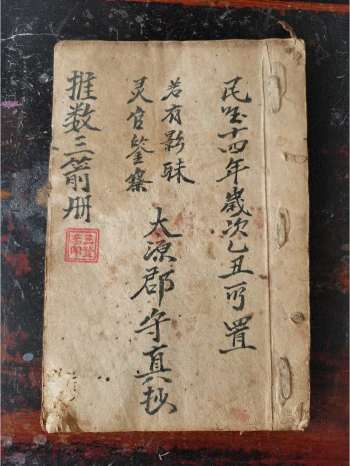 民国十四年歲次乙丑可置
若有影昧
灵官鑒察
太源郡守真抄
推数三箭册